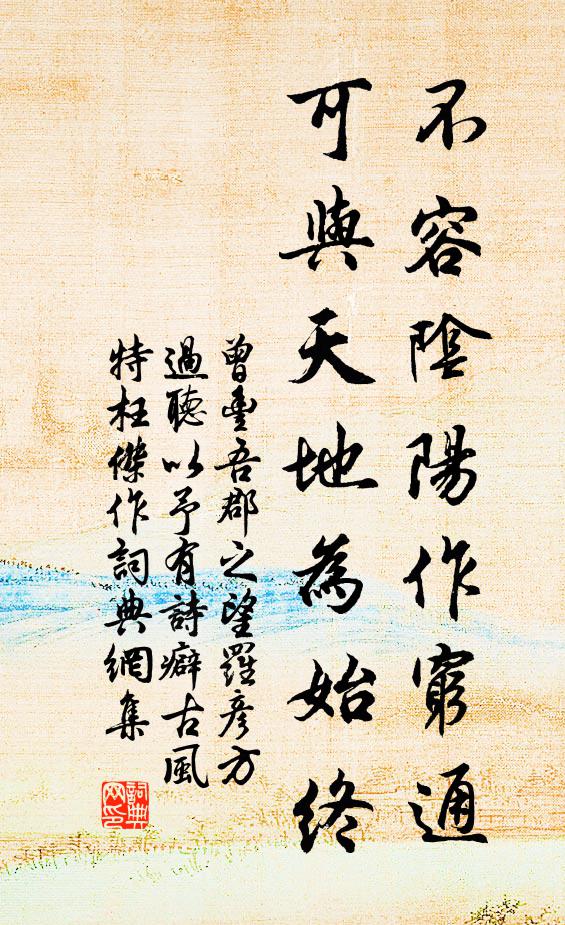 不容陰陽作窮通
可與天地為始終
曾豐吾郡之望羅彥方
過聽以予有詩癖古風
特枉傑作詞典網集
詞典网印